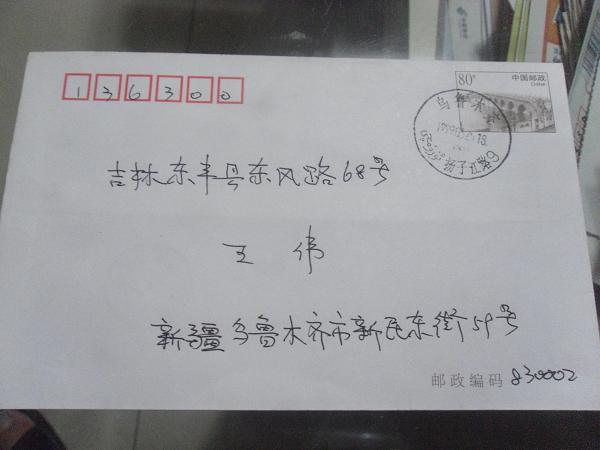 136300
80分
中国邮政
CHINA
吉林东丰县东风路68号
王伟
新疆乌鲁木齐市新民东街59号
邮政编码 830002
乌鲁木齐
扬子江路9